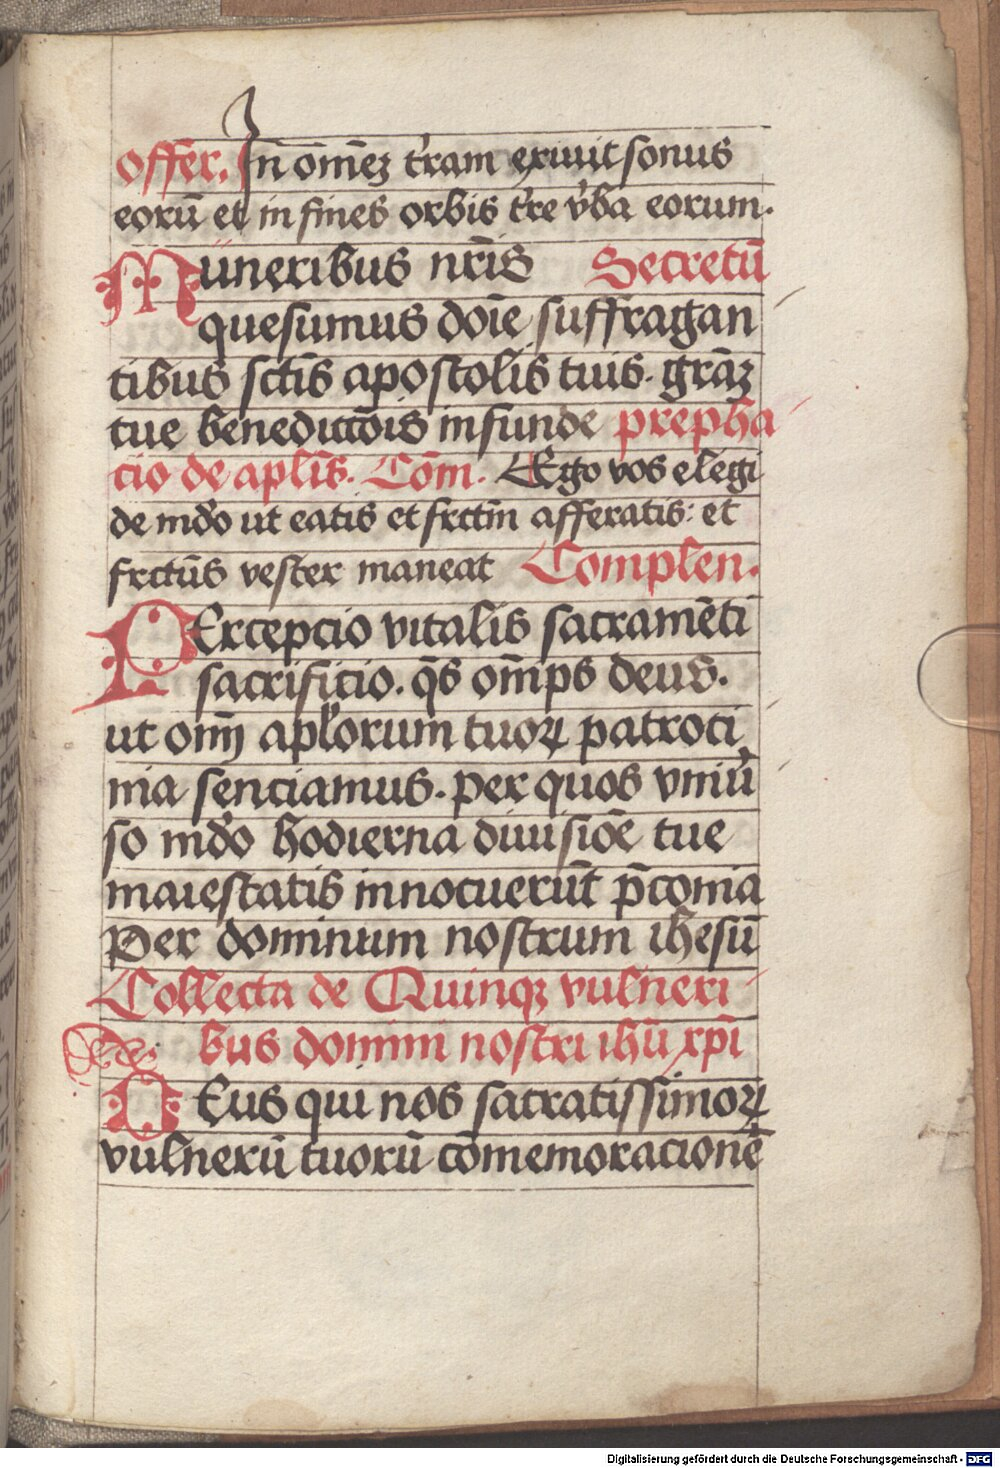 Offer̄. Jn om̄eꝫ t'ram exiuit sonus
eorū et in fines orbis t're v'ba eorum.
Muneribus nr̄is Secretū
quesumus doīe suffragan
tibus sctīs apostolis tuis. grāꝫ
tue benedictōis infunde prepha
cio de aplīs. Cōm. Ego vos elegi
de mdo ut eatis et frctm̄ afferatis: et
frctūs vester maneat Complen.
PErcepcio vitalis sacramēti
sacrificio. qs̄ om̄ps deus.
ut om̄ aplorum tuoꝝ patroci
nia senciamus. per quos vniu'
so mdo hodierna diuisiōe tue
maiestatis innocuerūt p̄conia
Per dominum nostrum ihesū
Collecta de Quinqꝫ vulneri
bus domini nostri ihū xp̄i
DEus qui nos sacratissimoꝝ
vulnerū tuorū cōmemoracionē
Digitalisierung gefördert durch die Deutsche Forschungsgemeinschaft - DFG